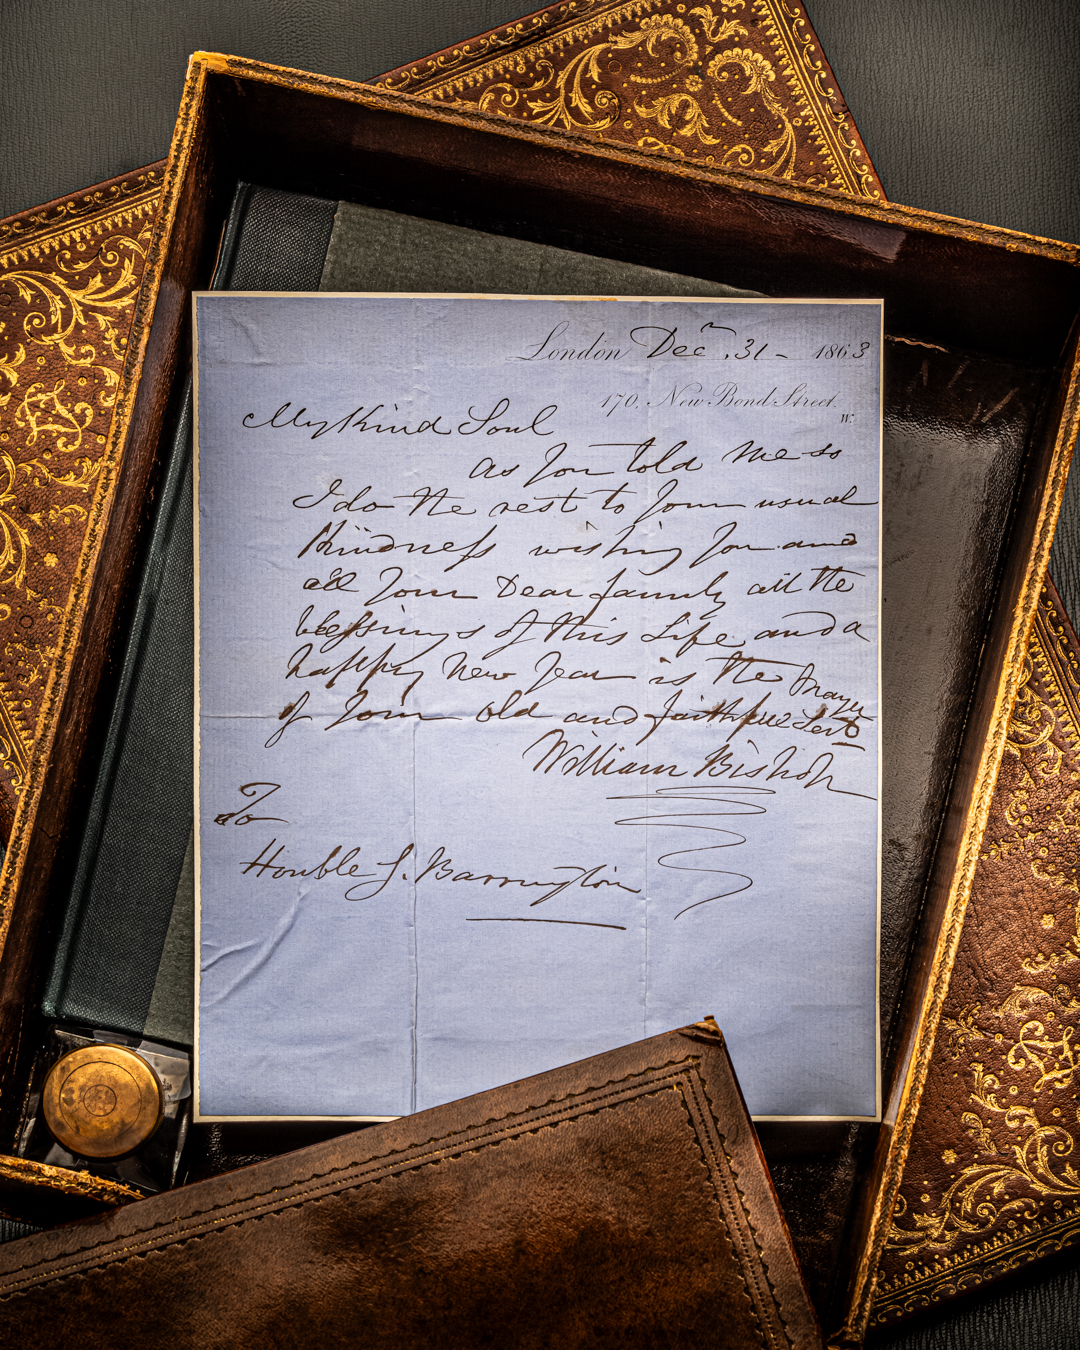 London Decr. 31 - 1863
170, New Bond Street.
W.
My Kind Soul
as you told me so
I do the rest to your usual
Kindness wishing you and
all your Dear family all the
blessings of this Life and a
happy New Year is the Prayer
of your old and faithful Servt
William Bishop
To
Honble G. Barrington